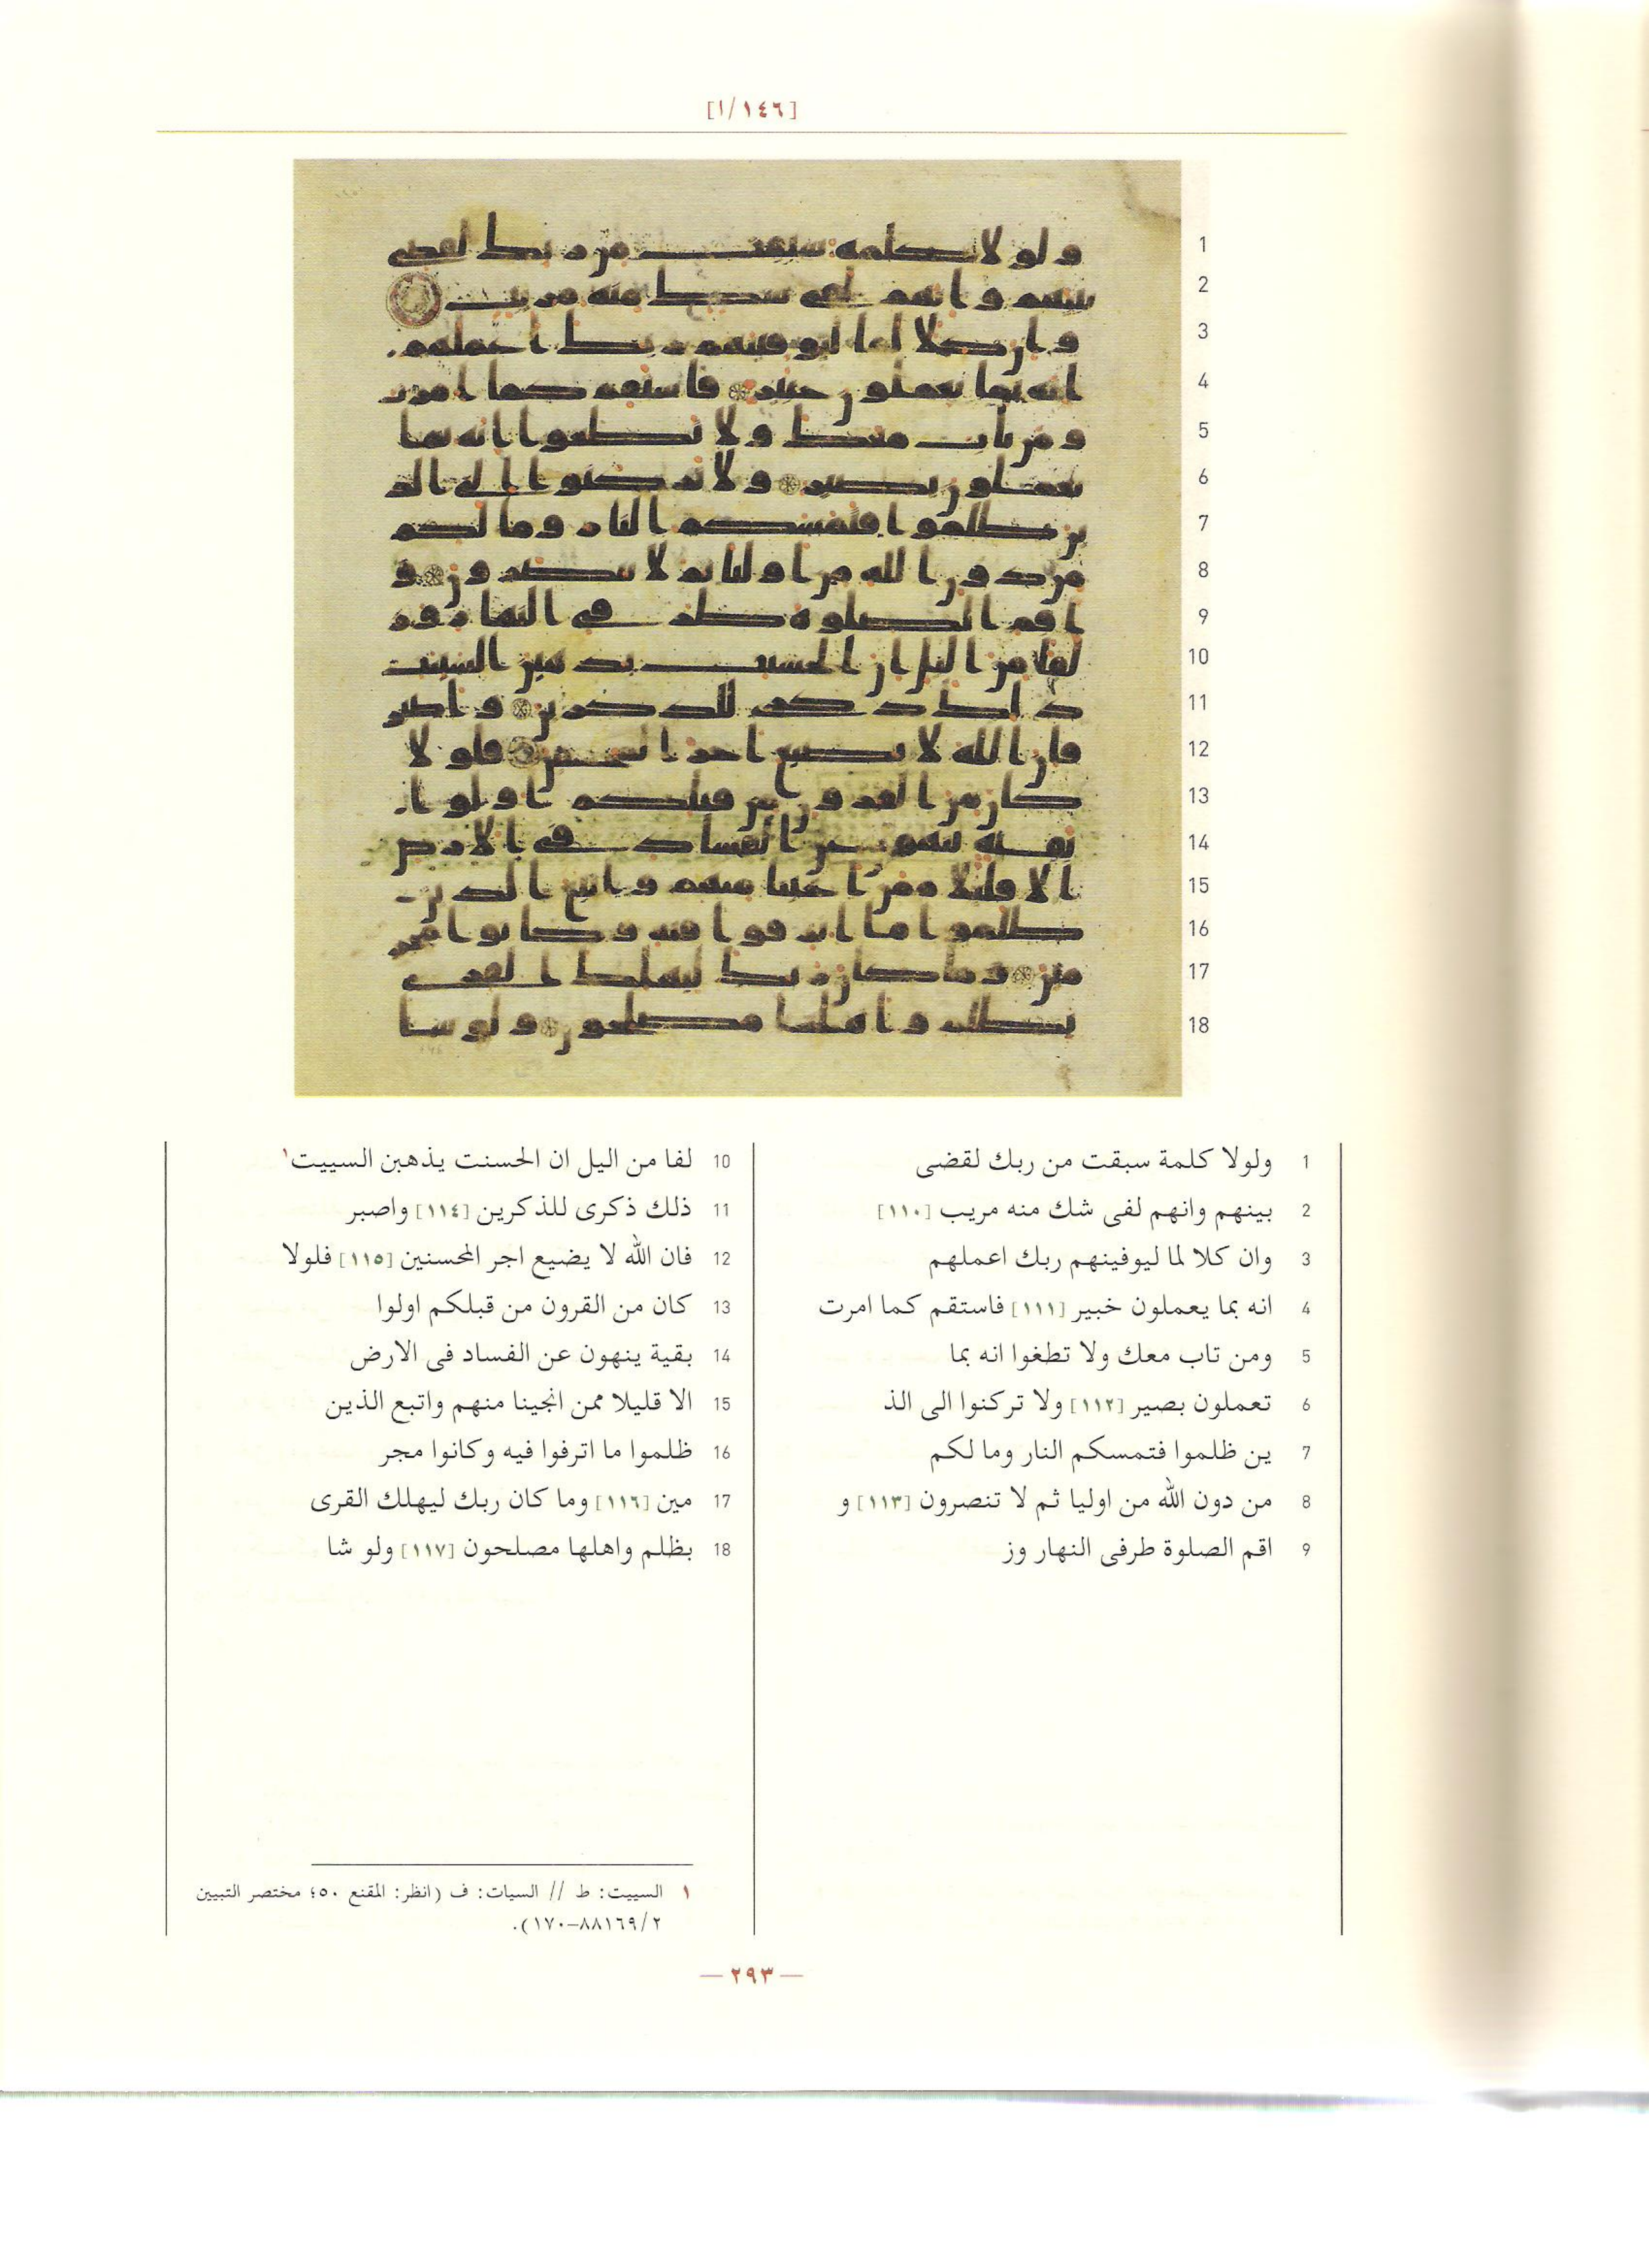 [١٤٦/١]
1 ولولا كلمة سبقت من ربك لقضى
2 بينهم وانهم لفى شك منه مريب [١١٠]
3 وان كلا لما ليوفينهم ربك اعملهم
4 انه بما يعملون خبير [١١١] فاستقم كما امرت
5 ومن تاب معك ولا تطغوا انه بما
6 تعملون بصير [١١٢] ولا تركنوا الى الذ
7 ين ظلموا فتمسكم النار وما لكم
8 من دون الله من اوليا ثم لا تنصرون [١١٣] و
9 اقم الصلوة طرفى النهار وز
10 لفا من اليل ان الحسنت يذهبن السييت١
11 ذلك ذكرى للذكرين [١١٤] واصبر
12 فان الله لا يضيع اجر المحسنين [١١٥] فلولا
13 كان من القرون من قبلكم اولوا
14 بقية ينهون عن الفساد فى الارض
15 الا قليلا ممن انجينا منهم واتبع الذين
16 ظلموا ما اترفوا فيه وكانوا مجر
17 مين [١١٦] وما كان ربك ليهلك القرى
18 بظلم واهلها مصلحون [١١٧] ولو شا
١ السييت: ط // السيات: ف (انظر: المقنع ٥٠؛ مختصر التبيين
٢/٨٨١٦٩–١٧٠).
— ٢٩٣ —